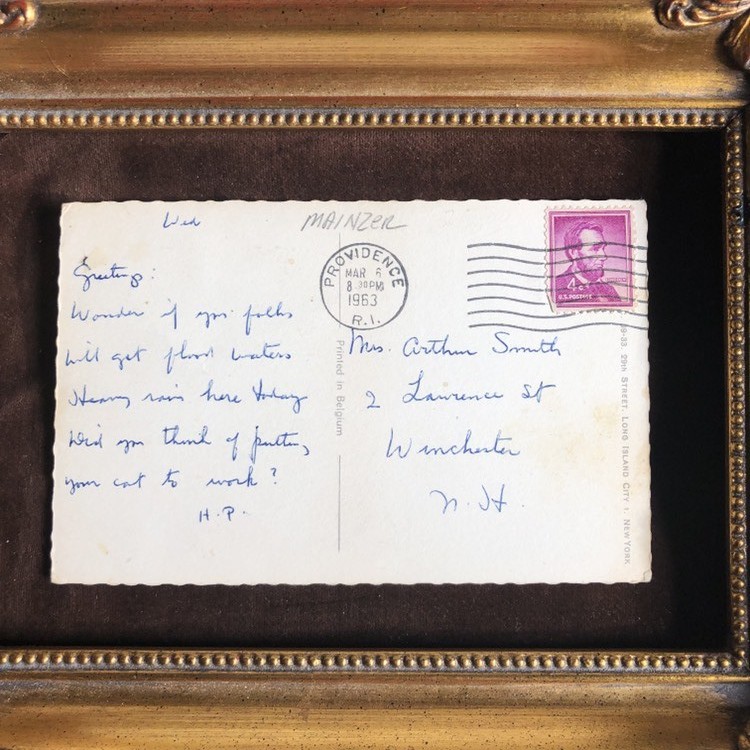 Wed
MAINZER
Greetings:
Wonder if your folks
will get flood waters
Heavy rain here today
Did you think of putting
your cat to work?
H.P.
PROVIDENCE
MAR 6
8 30 PM
1963
R.I.
4¢
U.S. POSTAGE
Mrs. Arthur Smith
2 Lawrence St
Winchester
N.H.
Printed in Belgium
29th STREET, LONG ISLAND CITY 1, NEW YORK